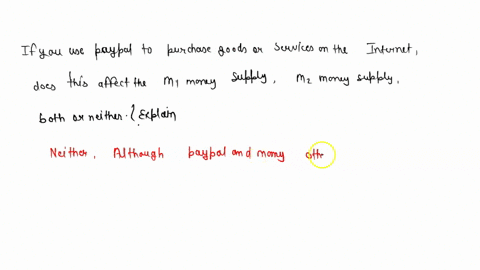 If you use paypal to purchase goods or services on the Internet,
does this affect the M1 money supply, M2 money supply,
both or neither. Explain
Neither, Although paypal and many oth